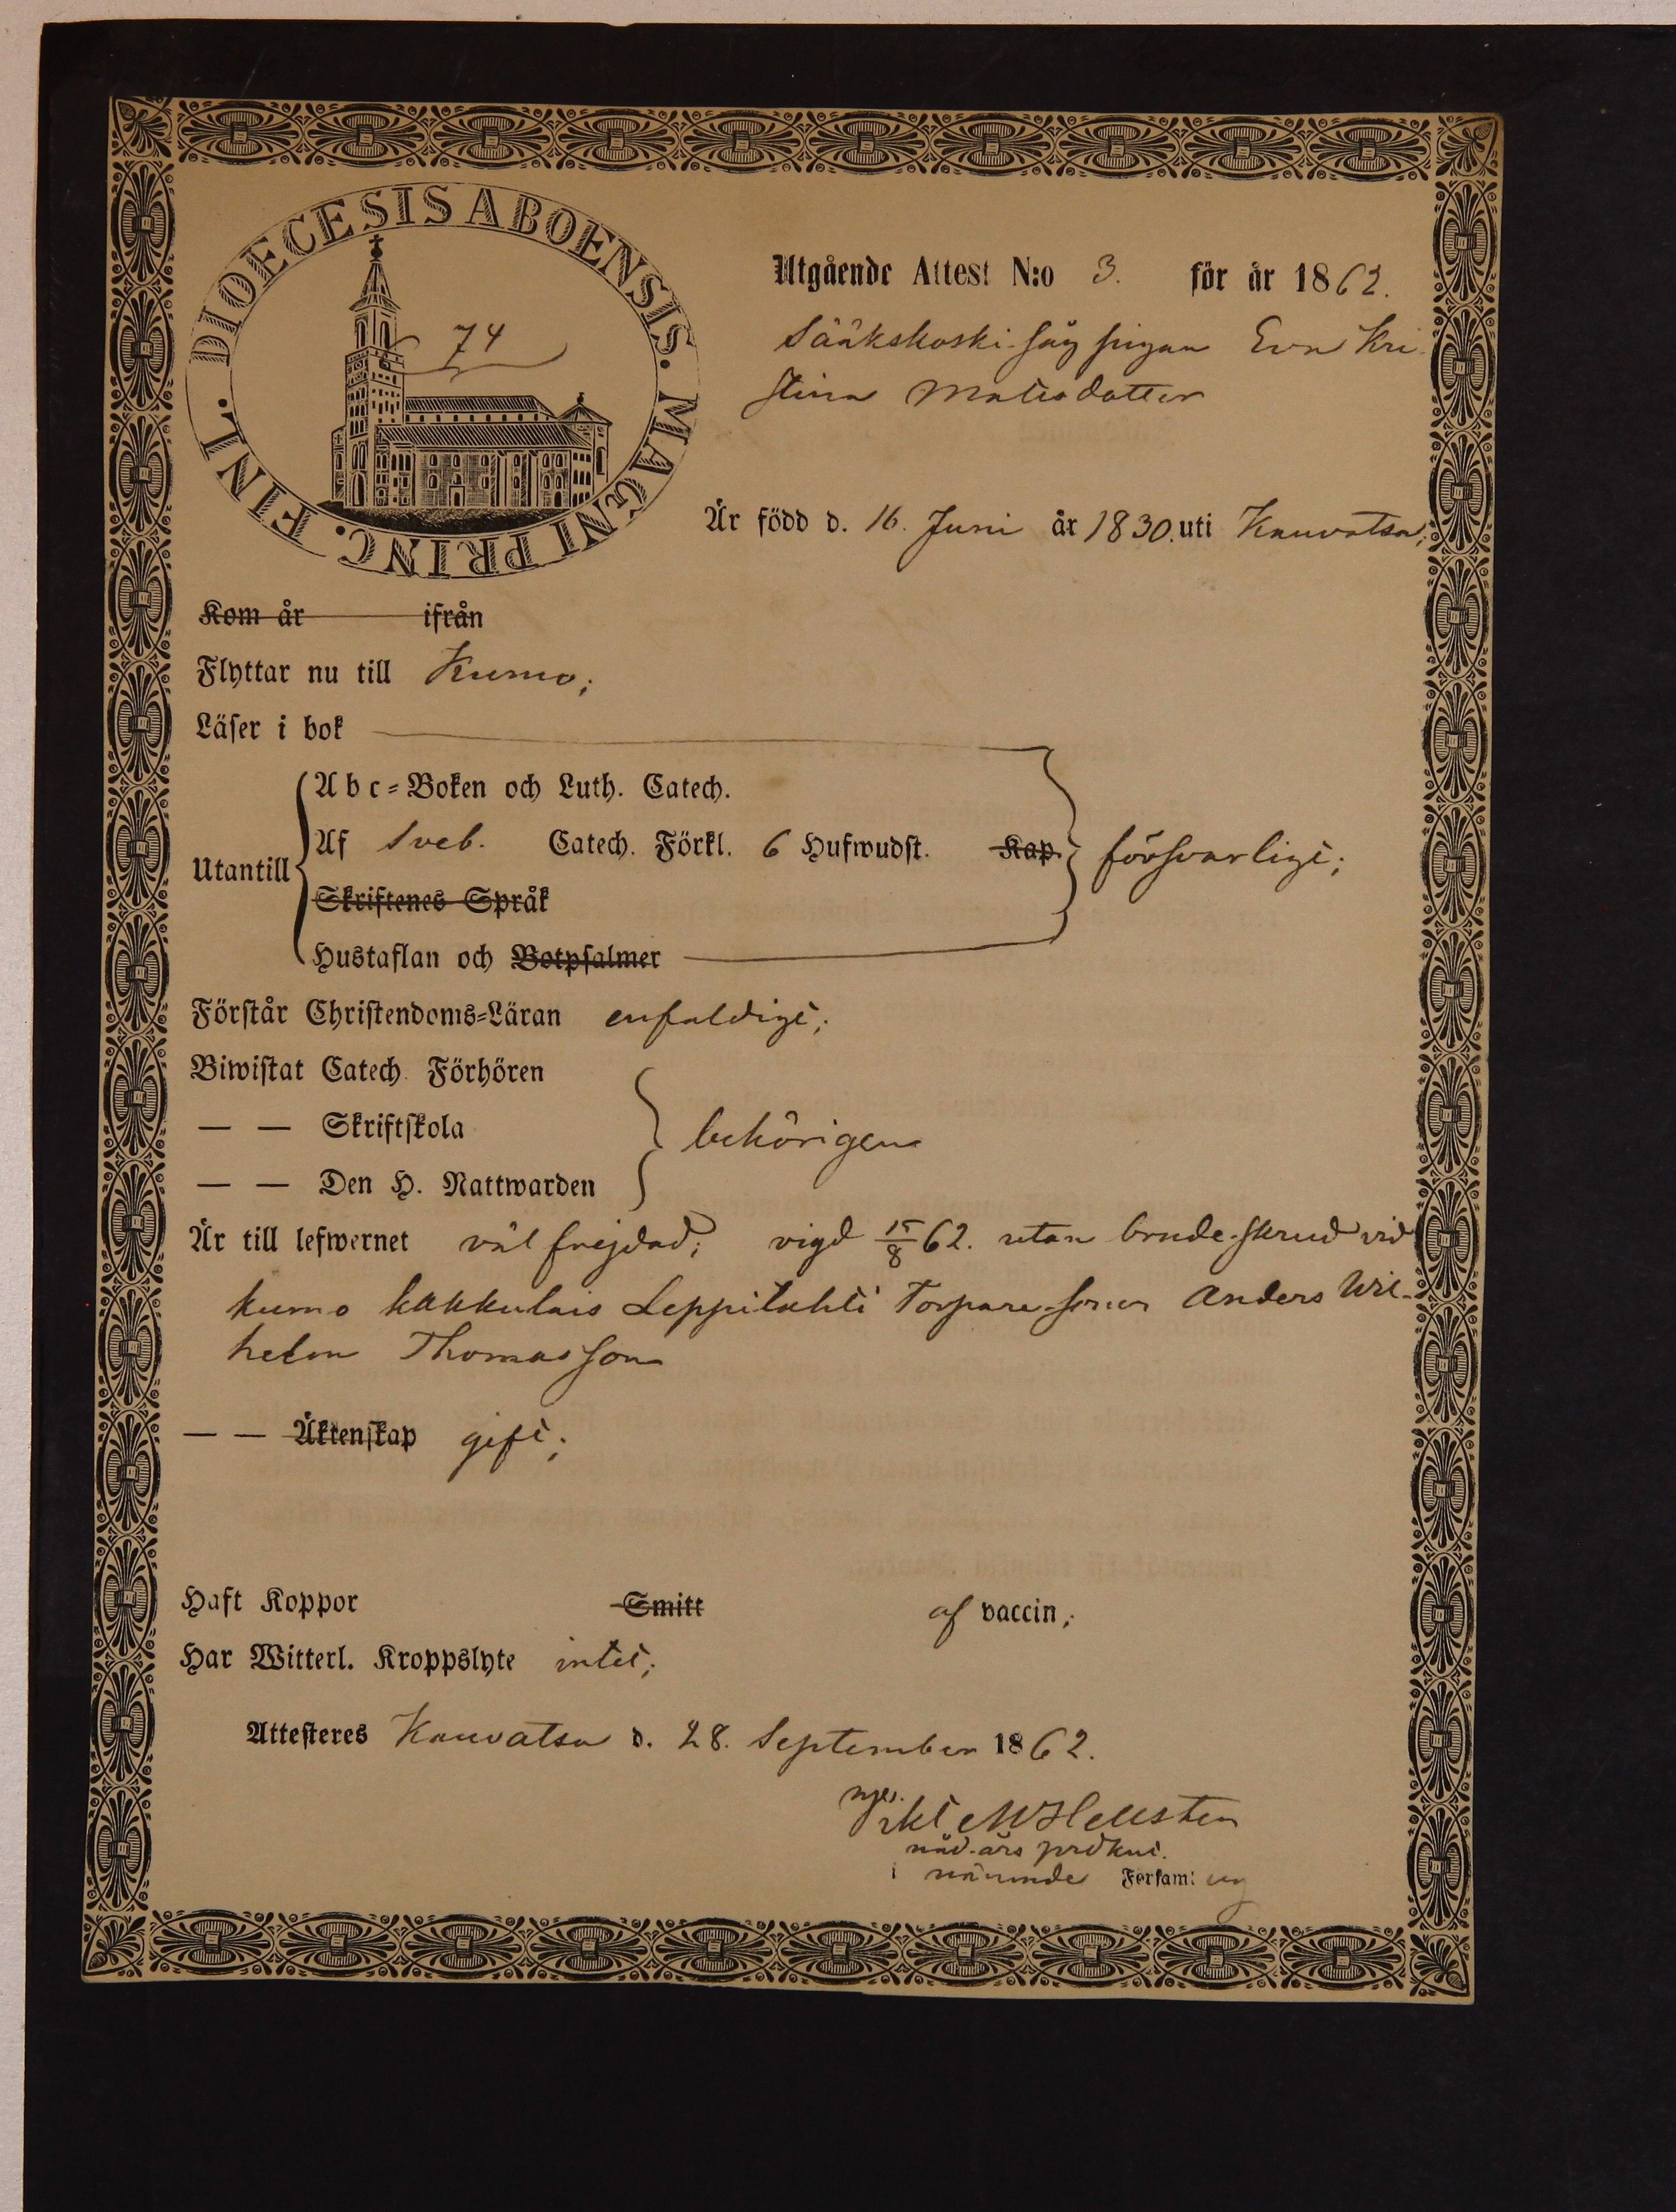 DIOECESIS ABOENSIS. MAGNI PRINC. FINL.
74
Utgående Attest N:o 3. för år 1862.
Sääkskoski såg pigan Eva Kri-
stina Matisdotter
Är född d. 16. Juni år 1830. uti Kauvatsa;
Kom år ifrån
Flyttar nu till Kumo;
Läser i bok
Utantill
A b c-Boken och Luth. Catech.
Af Sveb. Catech. Förkl. 6 Hufwudst. Kap. försvarligt;
Skriftenes Språk
Hustaflan och Botpsalmer
Förstår Christendoms-Läran enfaldigt;
Biwistat Catech. Förhören
— — Skriftskola behörigen
— — Den H. Nattwarden
Är till lefwernet väl frejdad; vigd 15/8 62. utan brude-skrud vid
kumo kakkulais Leppilahti Torpare-sonen Anders Wil-
helm Thomasson
— — Äktenskap gift;
Haft Koppor Smitt af vaccin;
Har Witterl. Kroppslyte intet;
Attesteres Kauvatsa d. 28. September 1862.
Hellsten
nåd-års
i nämnde Församl